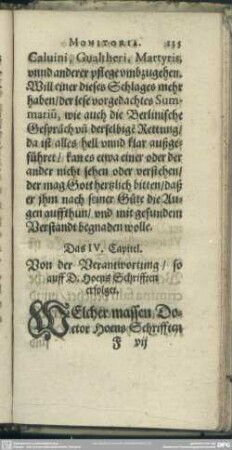 MONITORIA. 133
Caluini, Gualtheri, Martyris,
vnnd anderer pflege vmbzugehen.
Will einer dieses Schlages mehr
haben/ der lese vorgedachtes Sum-
mariũ, wie auch die Berlinische
Gespräch vñ derselbigẽ Rettung/
da ist alles hell vnnd klar außge-
führet/ kan es etwa einer oder der
ander nicht sehen oder verstehen/
der mag Gott hertzlich bitten/ daß
er jhm nach seiner Güte die Au-
gen auffthun/ vnd mit gesundem
Verstandt begnaden wolle.
Das IV. Capitel.
Von der Verantwortung/ so
auff D. Hoens Schrifften
erfolget.
WElcher massen Do-
ctor Hoens Schrifften
F vij